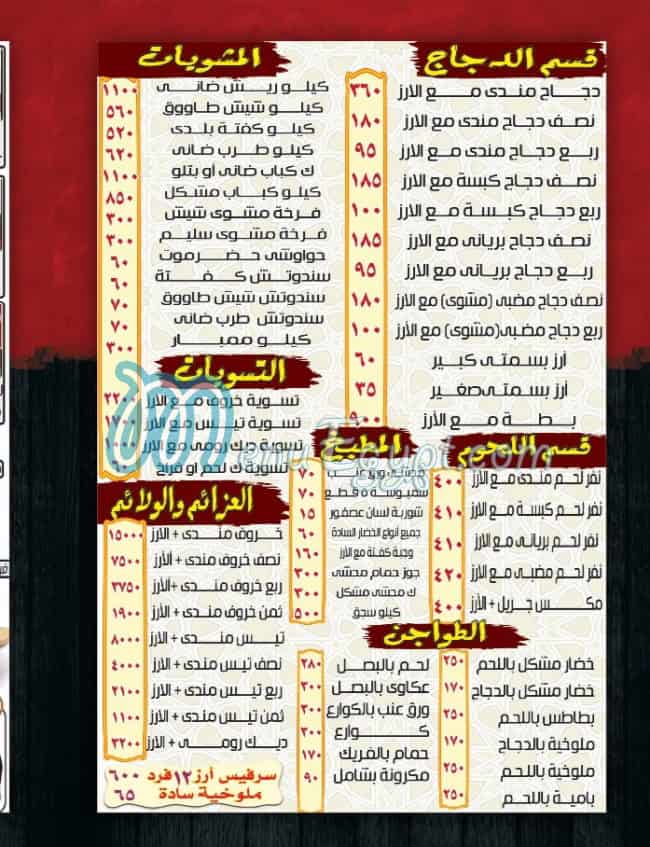 قسم الدجاج
دجاج مندى مع الارز ٣٦٠
نصف دجاج مندى مع الارز ١٨٠
ربع دجاج مندى مع الارز ٩٥
نصف دجاج كبسة مع الارز ١٨٥
ربع دجاج كبسة مع الارز ١٠٠
نصف دجاج بريانى مع الارز ١٨٥
ربع دجاج بريانى مع الارز ٩٥
نصف دجاج مضبى (مشوى) مع الارز ١٨٠
ربع دجاج مضبى (مشوى) مع الارز ١٠٠
أرز بسمتى كبير ٦٠
أرز بسمتى صغير ٣٥
بطة مع الأرز ٩٠٠
قسم اللحوم
نفر لحم مندى مع الارز ٤٠٠
نفر لحم كبسة مع الارز ٤١٠
نفر لحم بريانى مع الارز ٤١٠
نفر لحم مضبى مع الارز ٤٢٠
مكس جريل + الأرز ٤٠٠
المشويات
كيلو ريش ضانى ١١٠٠
كيلو شيش طاووق ٥٦٠
كيلو كفتة بلدى ٥٢٠
كيلو طرب ضانى ٦٢٠
ك كباب ضانى أو بتلو ١١٠٠
كيلو كباب مشكل ٨٥٠
فرخة مشوى شيش ٣٠٠
فرخة مشوى سليم ٣٠٠
حواوشى حضرموت ٦٠
سندوتش كفتة ٦٠
سندوتش شيش طاووق ٧٠
سندوتش طرب ضانى ٧٠
كيلو ممبار ٣٠٠
التسويات
تسوية خروف مع الارز ٢٢٠٠
تسوية تيس مع الارز ١٧٠٠
تسوية ديك رومى مع الارز
تسوية ك لحم او فراخ
المطبخ
ورق عنب ٧٠
سمبوسة ٥ قطع ٧٠
شوربة لسان عصفور ١٥
جميع أنواع الخضار السادة ٦٠
وجبة كفتة مع الأرز ١٦٠
جوز حمام محشى ٣٠٠
ك محشى مشكل ٣٠٠
كيلو سجق ٥٠٠
العزائم والولائم
خروف مندى + الأرز ١٥٠٠٠
نصف خروف مندى + الأرز ٧٥٠٠
ربع خروف مندى + الأرز ٣٧٥٠
ثمن خروف مندى + الأرز ١٩٠٠
تيس مندى + الأرز ٨٠٠٠
نصف تيس مندى + الأرز ٤٠٠٠
ربع تيس مندى + الأرز ٢١٠٠
ثمن تيس مندى + الأرز ١١٠٠
ديك رومى + الأرز ٣٢٠٠
سرفيس أرز ١٢ فرد ٦٠٠
ملوخية سادة ٦٥
الطواجن
خضار مشكل باللحم ٢٥٠
خضار مشكل بالدجاج ١٧٠
بطاطس باللحم ٢٥٠
ملوخية بالدجاج ١٧٠
ملوخية باللحم ٢٥٠
بامية باللحم ٢٥٠
لحم بالبصل ٢٨٠
عكاوى بالبصل ٣٠٠
ورق عنب بالكوارع ٣٠٠
كوارع ٣٠٠
حمام بالفريك ١٧٠
مكرونة بشامل ٩٠
MenuEgypt.com